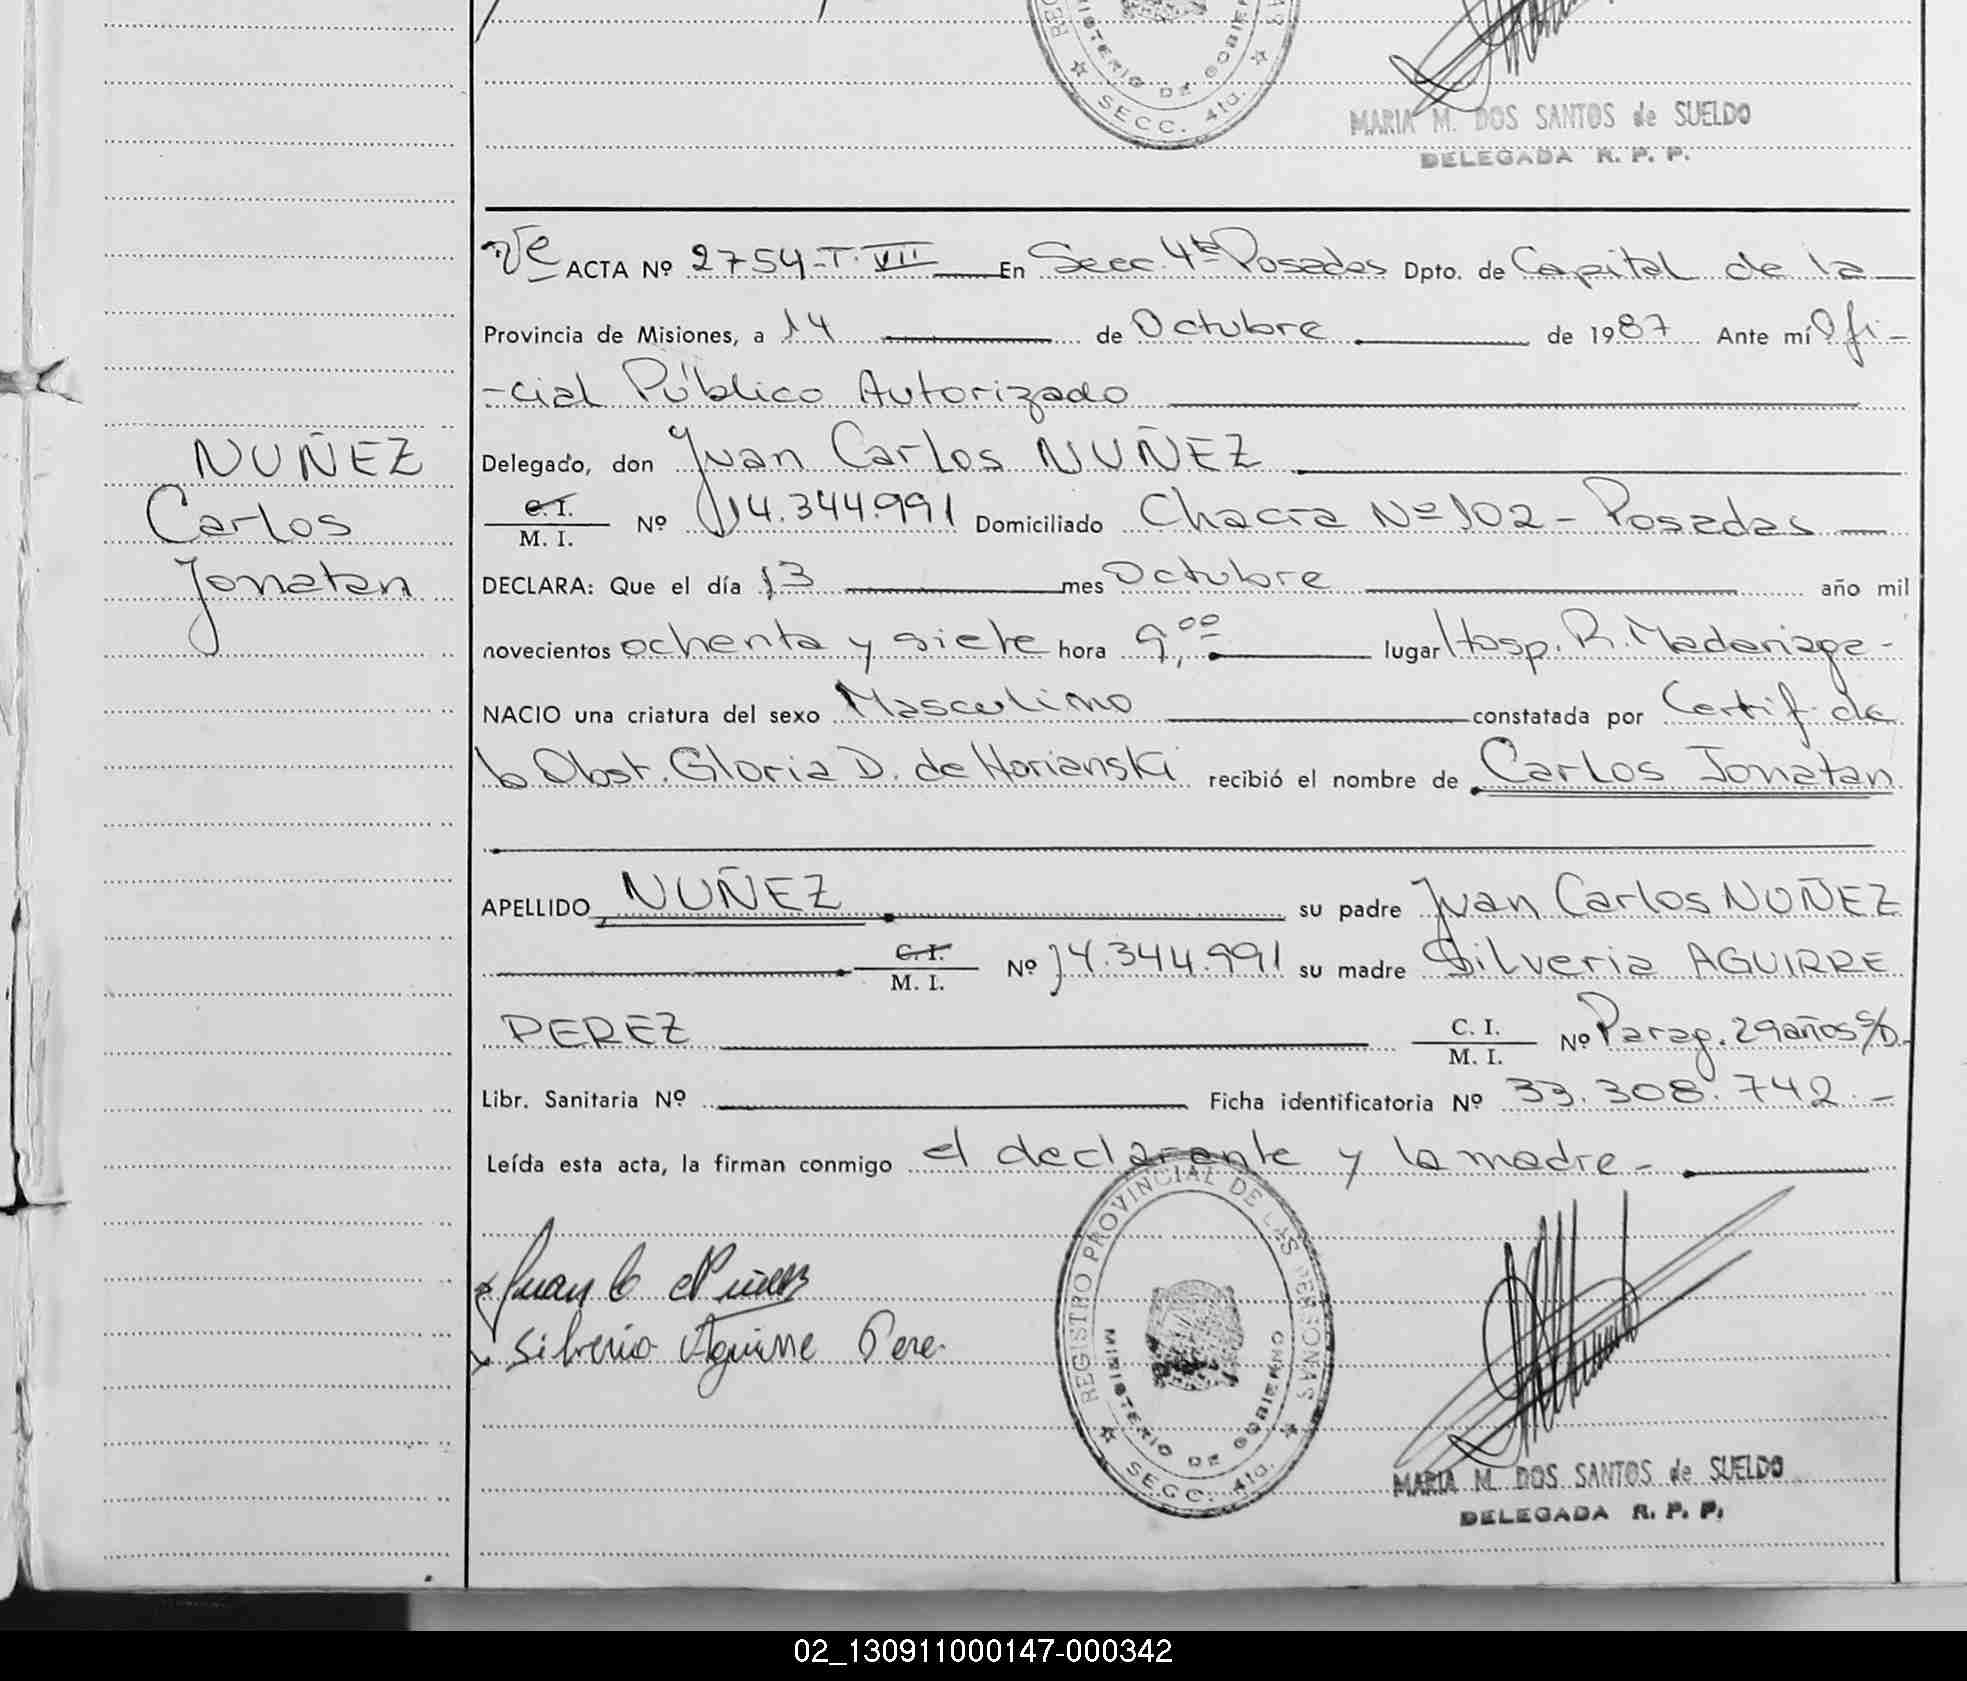 MINISTERIO DE GOBIERNO
SECC. 4ta.
MARIA M. DOS SANTOS de SUELDO
DELEGADA R. P. P.
ACTA Nº 2754-T-VII En Secc. 4ta Posadas Dpto. de Capital de la
Provincia de Misiones, a 14 de Octubre de 1987 Ante mí Ofi-
-cial Público Autorizado
NUÑEZ
Carlos
Jonatan
Delegado, don Juan Carlos NUÑEZ
C. I.
M. I. Nº 14.344.991 Domiciliado Chacra Nº 102 - Posadas
DECLARA: Que el día 13 mes Octubre año mil
novecientos ochenta y siete hora 9,00 lugar Hosp. R. Madariaga-
NACIO una criatura del sexo Masculino constatada por Certif. de
la Obst. Gloria D. de Horianski recibió el nombre de Carlos Jonatan
APELLIDO NUÑEZ su padre Juan Carlos NUÑEZ
C. I.
M. I. Nº 14.344.991 su madre Silveria AGUIRRE
PEREZ C. I.
M. I. Nº Parag. 29años s/D.
Libr. Sanitaria Nº Ficha identificatoria Nº 33.308.742.-
Leída esta acta, la firman conmigo el declarante y la madre-
REGISTRO PROVINCIAL DE LAS PERSONAS
MINISTERIO DE GOBIERNO
SECC. 4ta.
Juan C Nuñez
Silveria Aguirre Pere
MARIA M. DOS SANTOS de SUELDO
DELEGADA R. P. P.
02_130911000147-000342